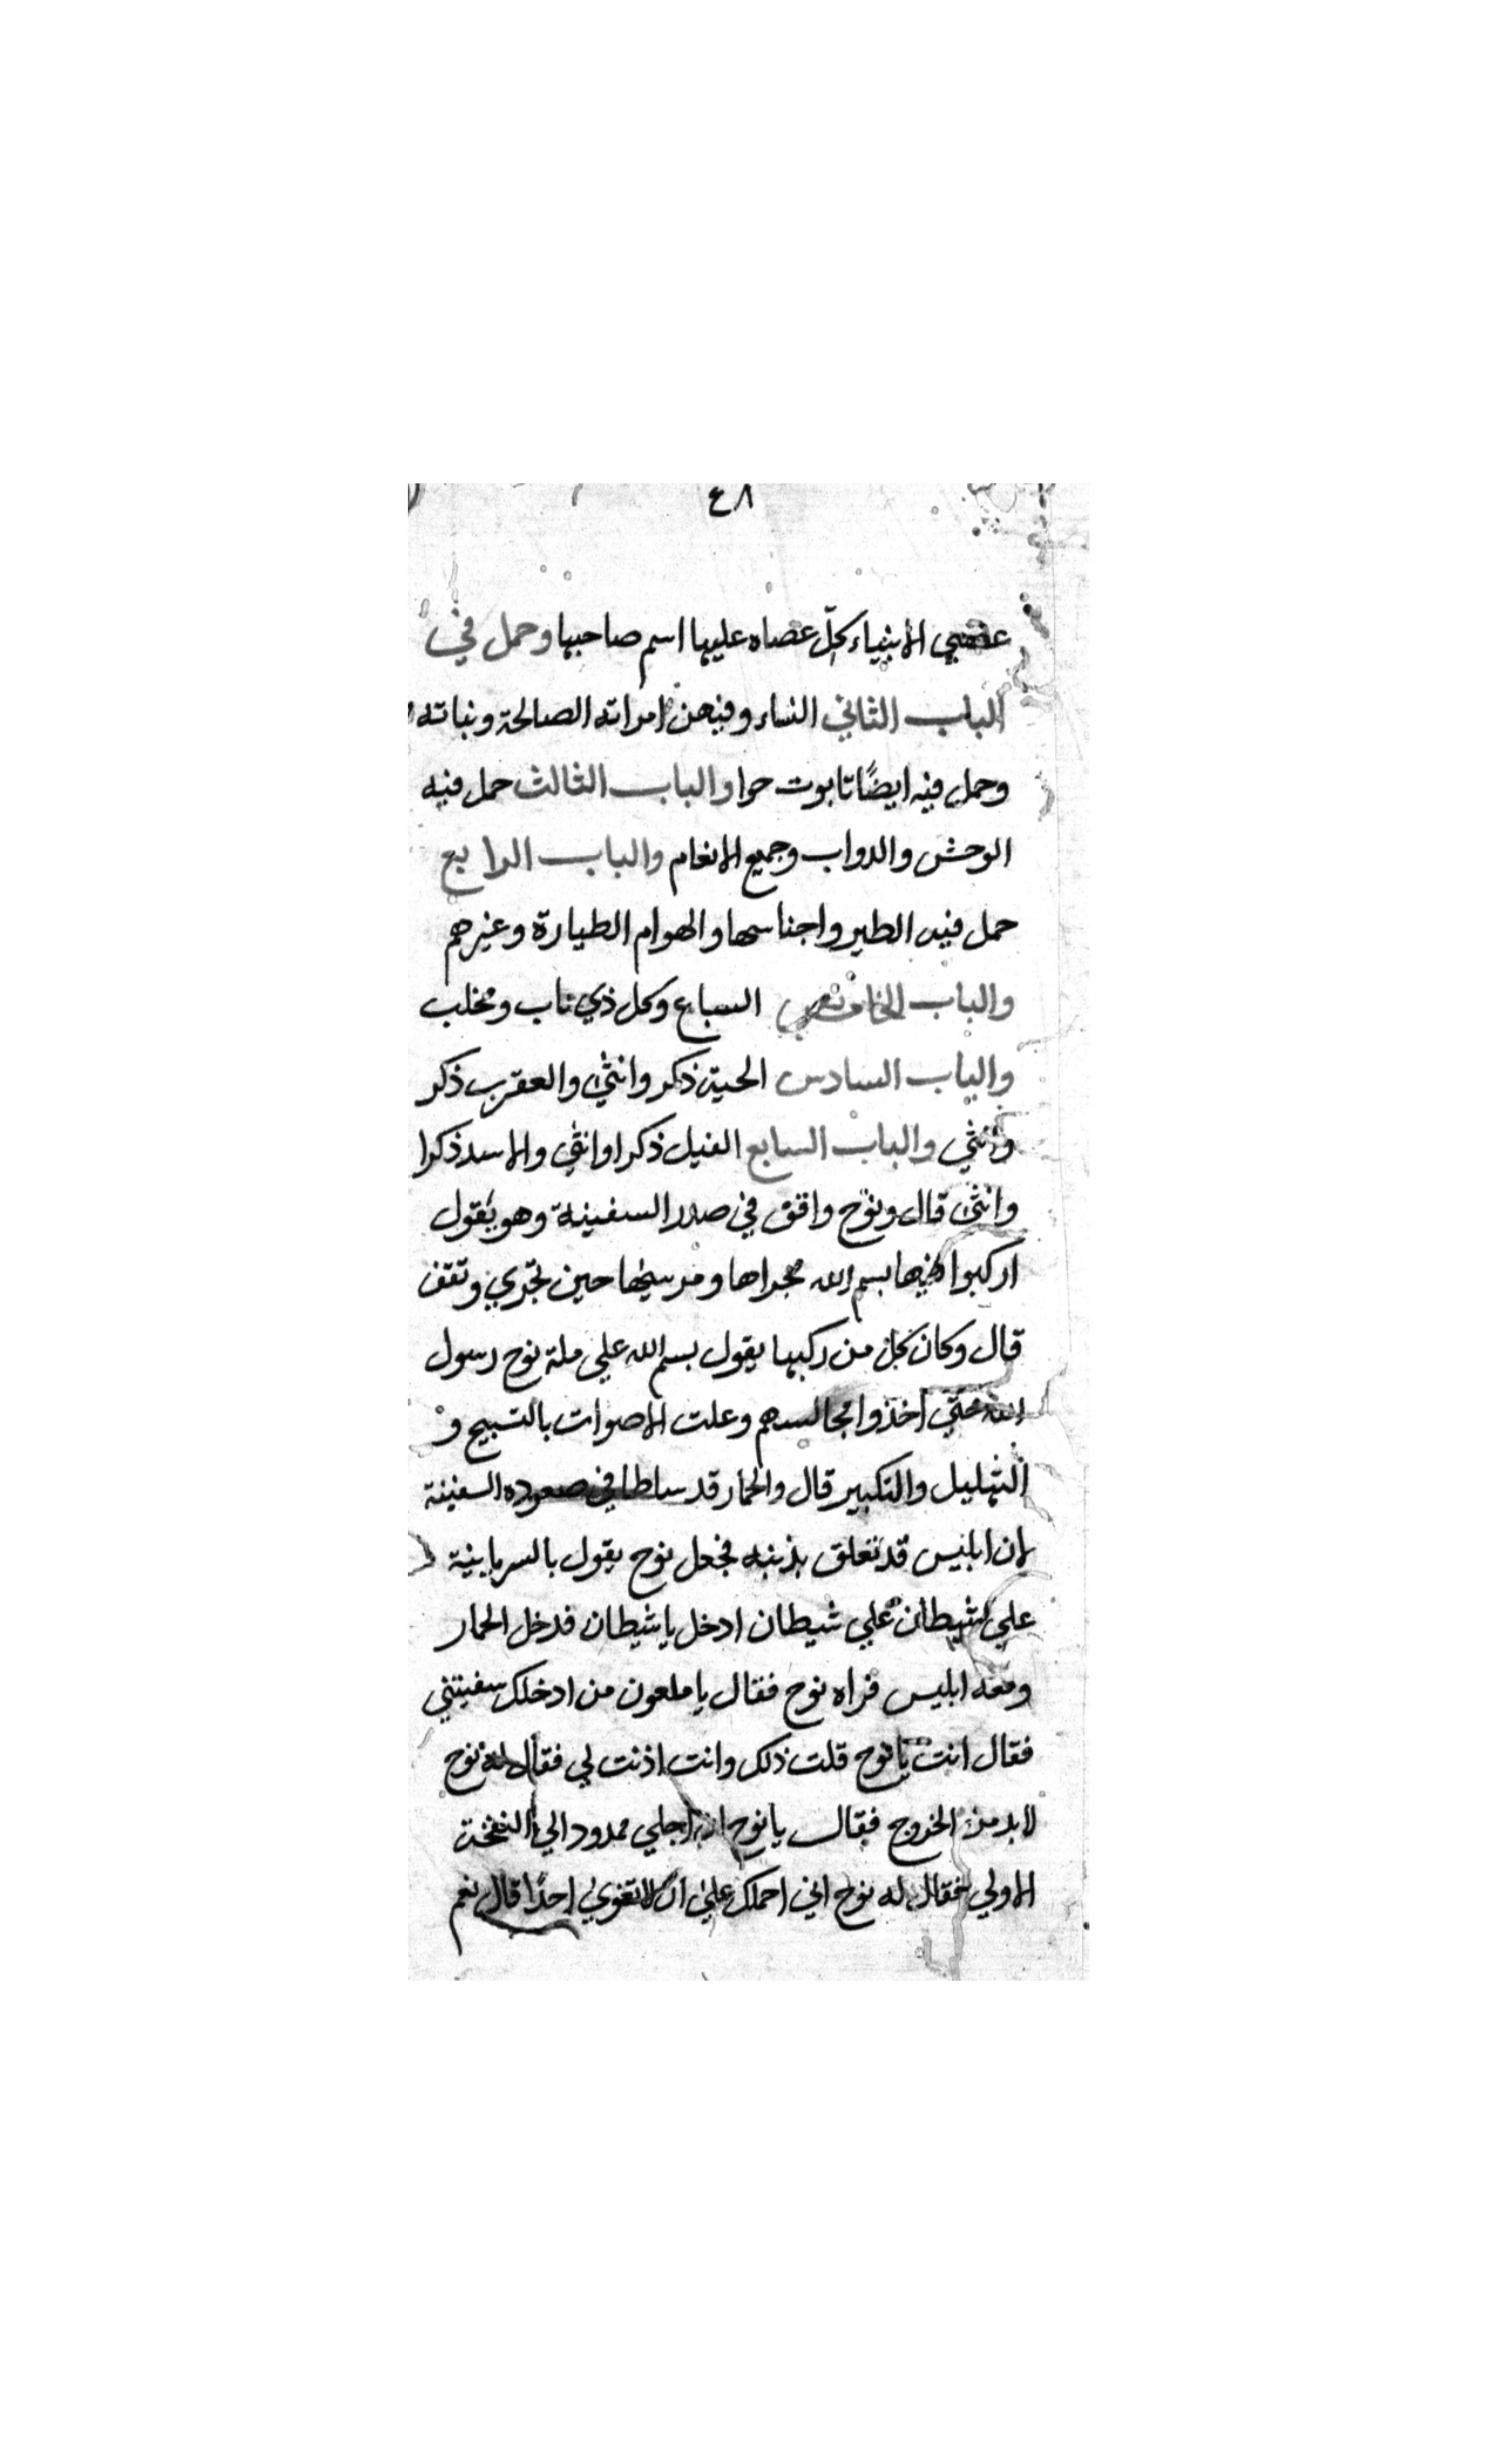 ٤٨
عصي الانبياء كلّ عصاه عليها اسم صاحبها وحمل في
الباب الثاني النساء وفيهن امراته الصالحة وبناته
وحمل فيه ايضًا تابوت حوا والباب الثالث حمل فيه
الوحش والدواب وجميع الانعام والباب الرابع
حمل فيه الطير واجناسها والهوام الطيارة وغيرهم
والباب الخامس السباع وكل ذي ناب ومخلب
والباب السادس الحية ذكر وانثي والعقرب ذكر
وانثي والباب السابع الفيل ذكرا وانثي والاسد ذكرا
وانثى قال ونوح واقف في صدر السفينة وهو يقول
اركبوا فيها بسم الله مجراها ومرسيها حين تجري وتقف
قال وكان كل من ركبها يقول بسم الله علي ملة نوح رسول
الله حتي اخذوا مجالسهم وعلت الاصوات بالتسبيح و
التهليل والتكبير قال والحمار قد ساطا في صعوده السفينة
لان ابليس قد تعلق بذنبه فجعل نوح يقول بالسريانية
علي شيطان علي شيطان ادخل يا شيطان فدخل الحمار
ومعه ابليس فراه نوح فقال يا ملعون من ادخلك سفينتي
فقال انت يا نوح قلت ذلك وانت اذنت لي فقال له نوح
لابد من الخروج فقال يا نوح ان اجلي ممدود الي النفخة
الاولي فقال له نوح اني احملك علي ان لا تغوي احدًا قال نعم